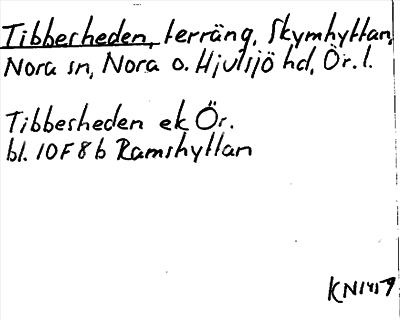 Tibbesheden, terräng, Skymhyttan,
Nora sn, Nora o. Hjulsjö hd, Ör. l.
Tibbesheden ek Ör.
bl. 10F 8b Ramshyttan